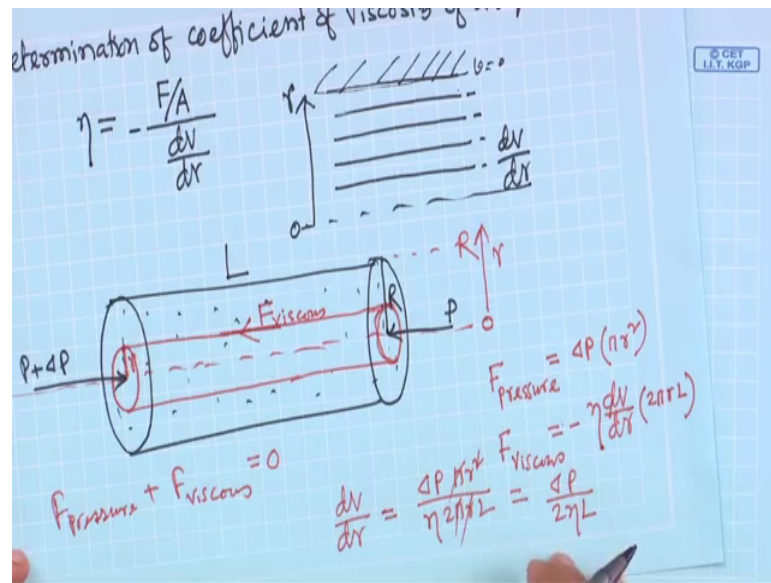 etermination of coefficient of viscosity of
© CET
I.I.T. KGP
η = - F/A / dv/dr
r
v=0
dv/dr
0
L
R
r
F viscous
R
P
0
P+ΔP
r
F pressure = ΔP (πr²)
F viscous = - η dv/dr (2πrL)
F pressure + F viscous = 0
dv/dr = ΔP πr² / η 2πrL = ΔP / 2ηL